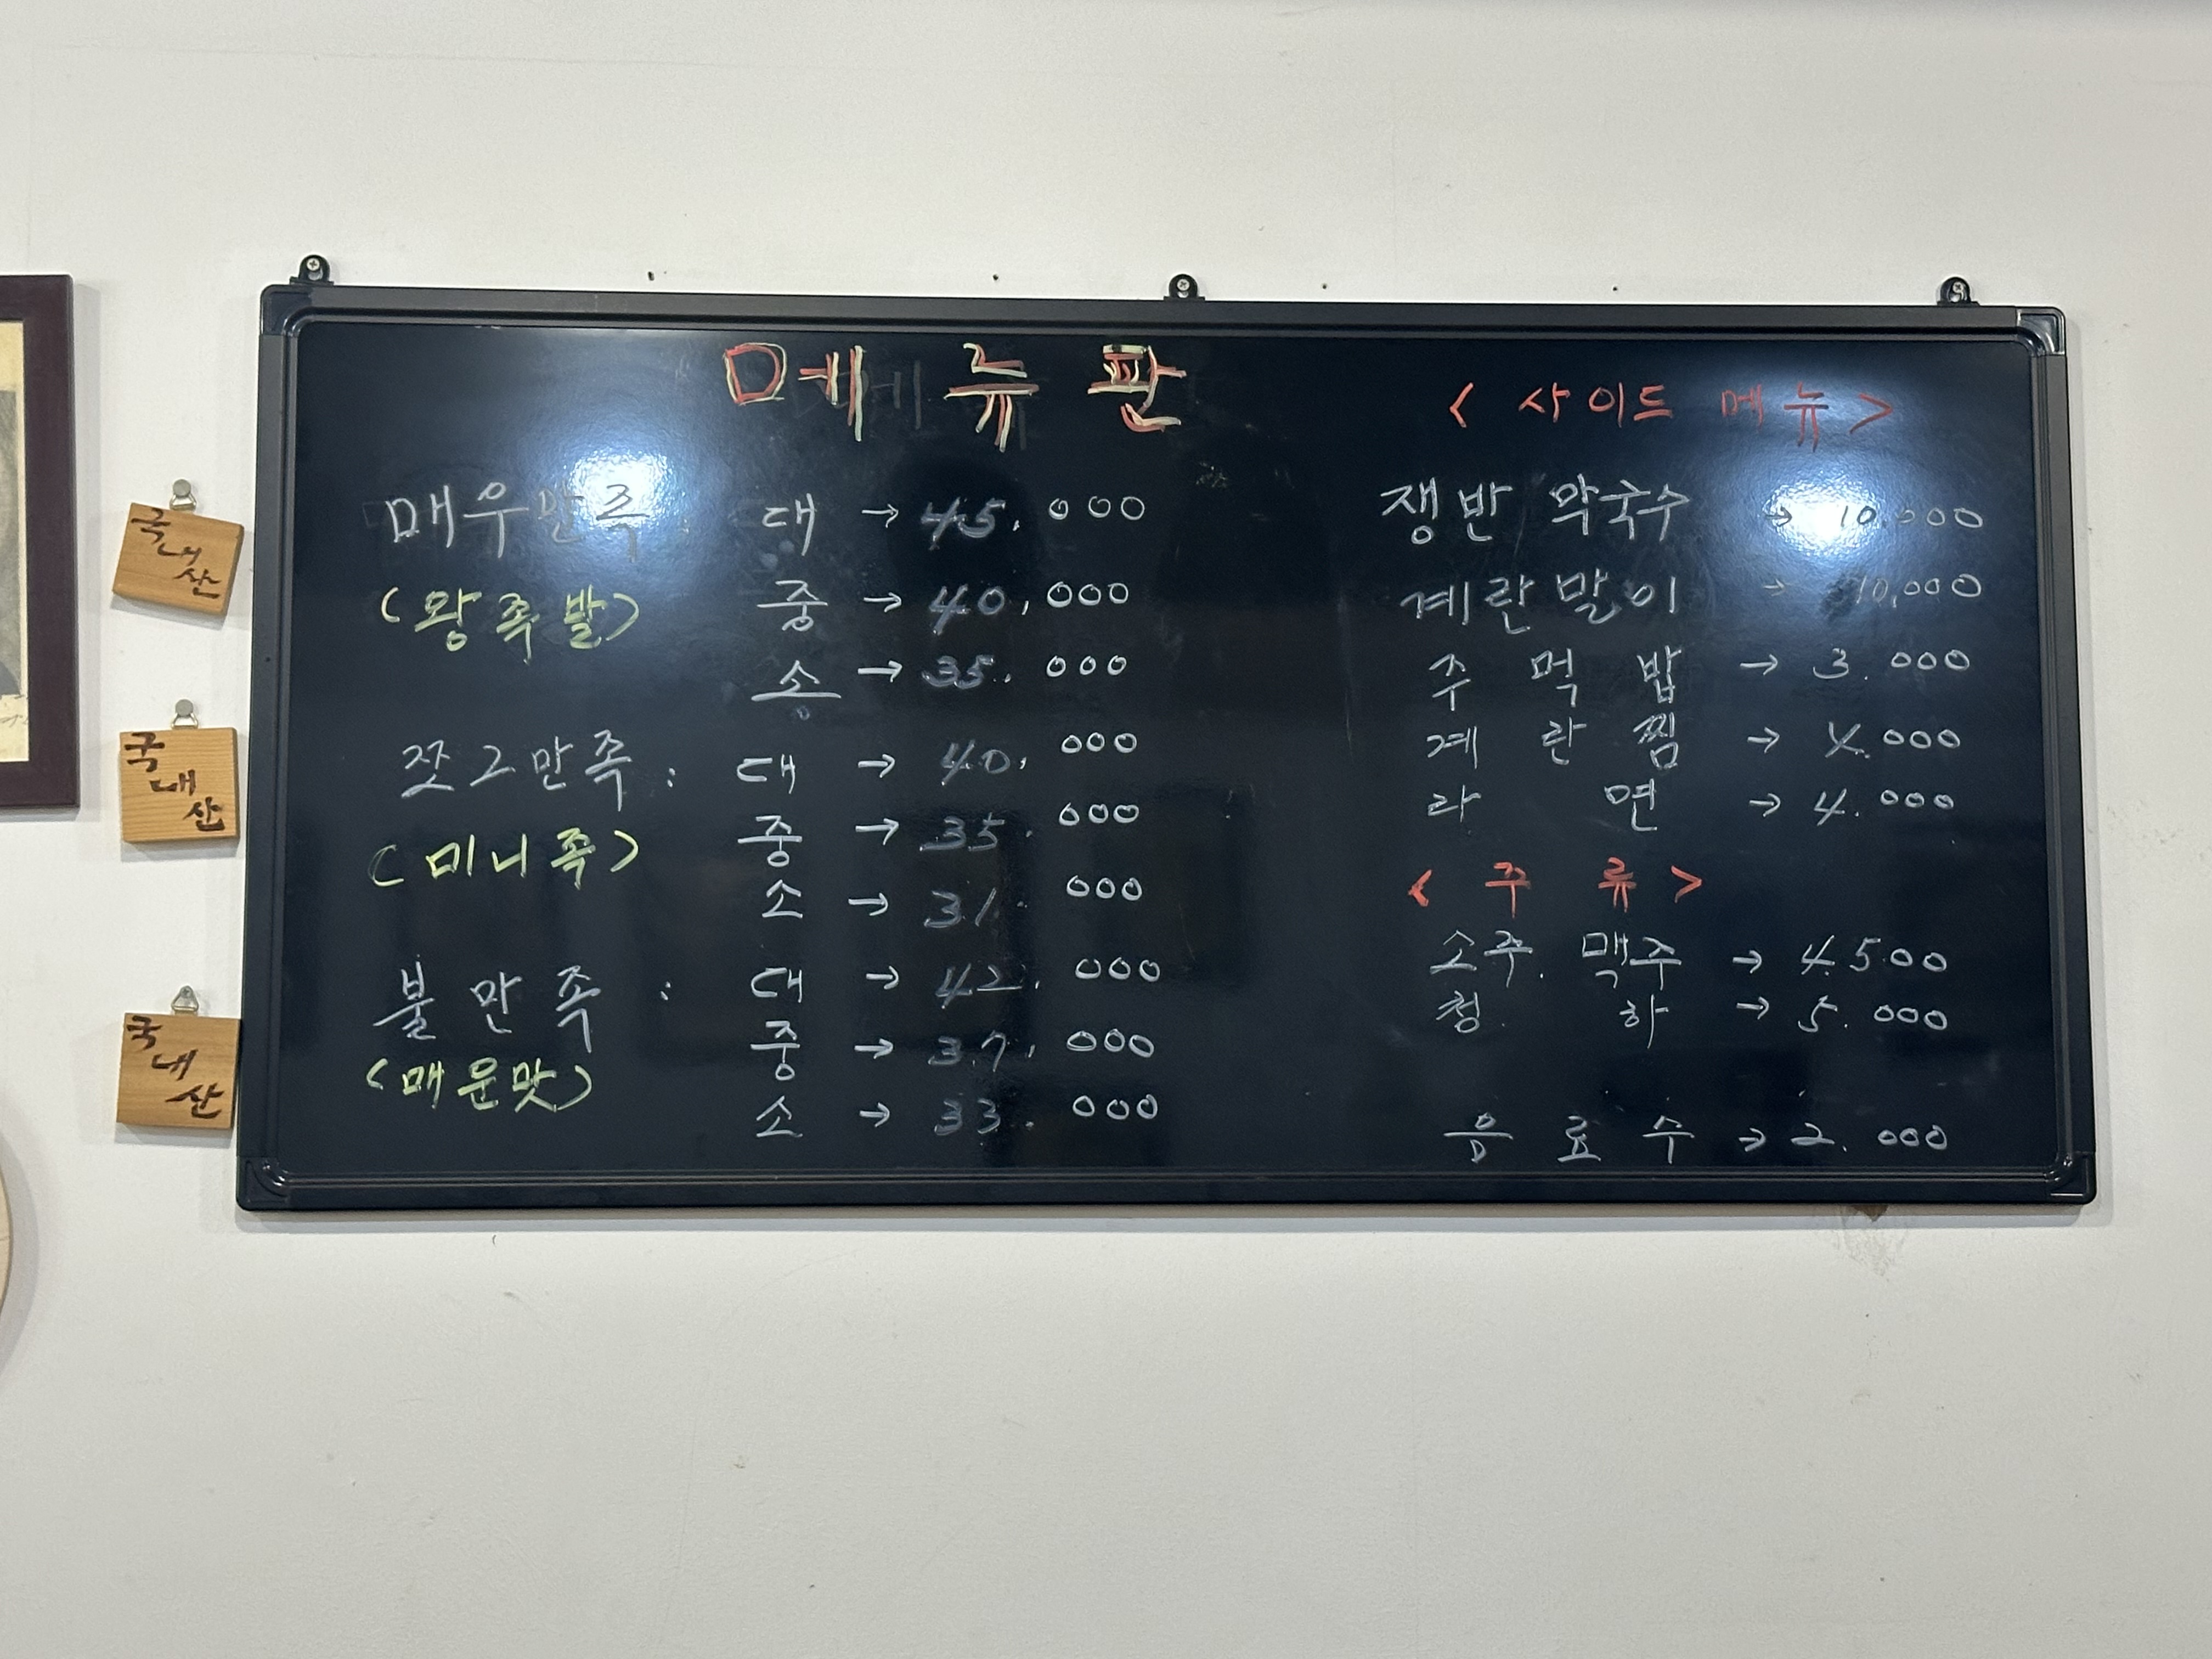 메뉴판
매우만족 : 대 → 45.000
(왕족발) 중 → 40,000
소 → 35.000
쪼그만족 : 대 → 40,000
(미니족) 중 → 35.000
소 → 31.000
불만족 : 대 → 42.000
(매운맛) 중 → 37,000
소 → 33.000
< 사이드 메뉴 >
쟁반 막국수 → 10,000
계란말이 → 10,000
주먹밥 → 3.000
계란찜 → 4.000
라면 → 4.000
< 주류 >
소주. 맥주 → 4.500
청하 → 5.000
음료수 → 2.000
국내산
국내산
국내산